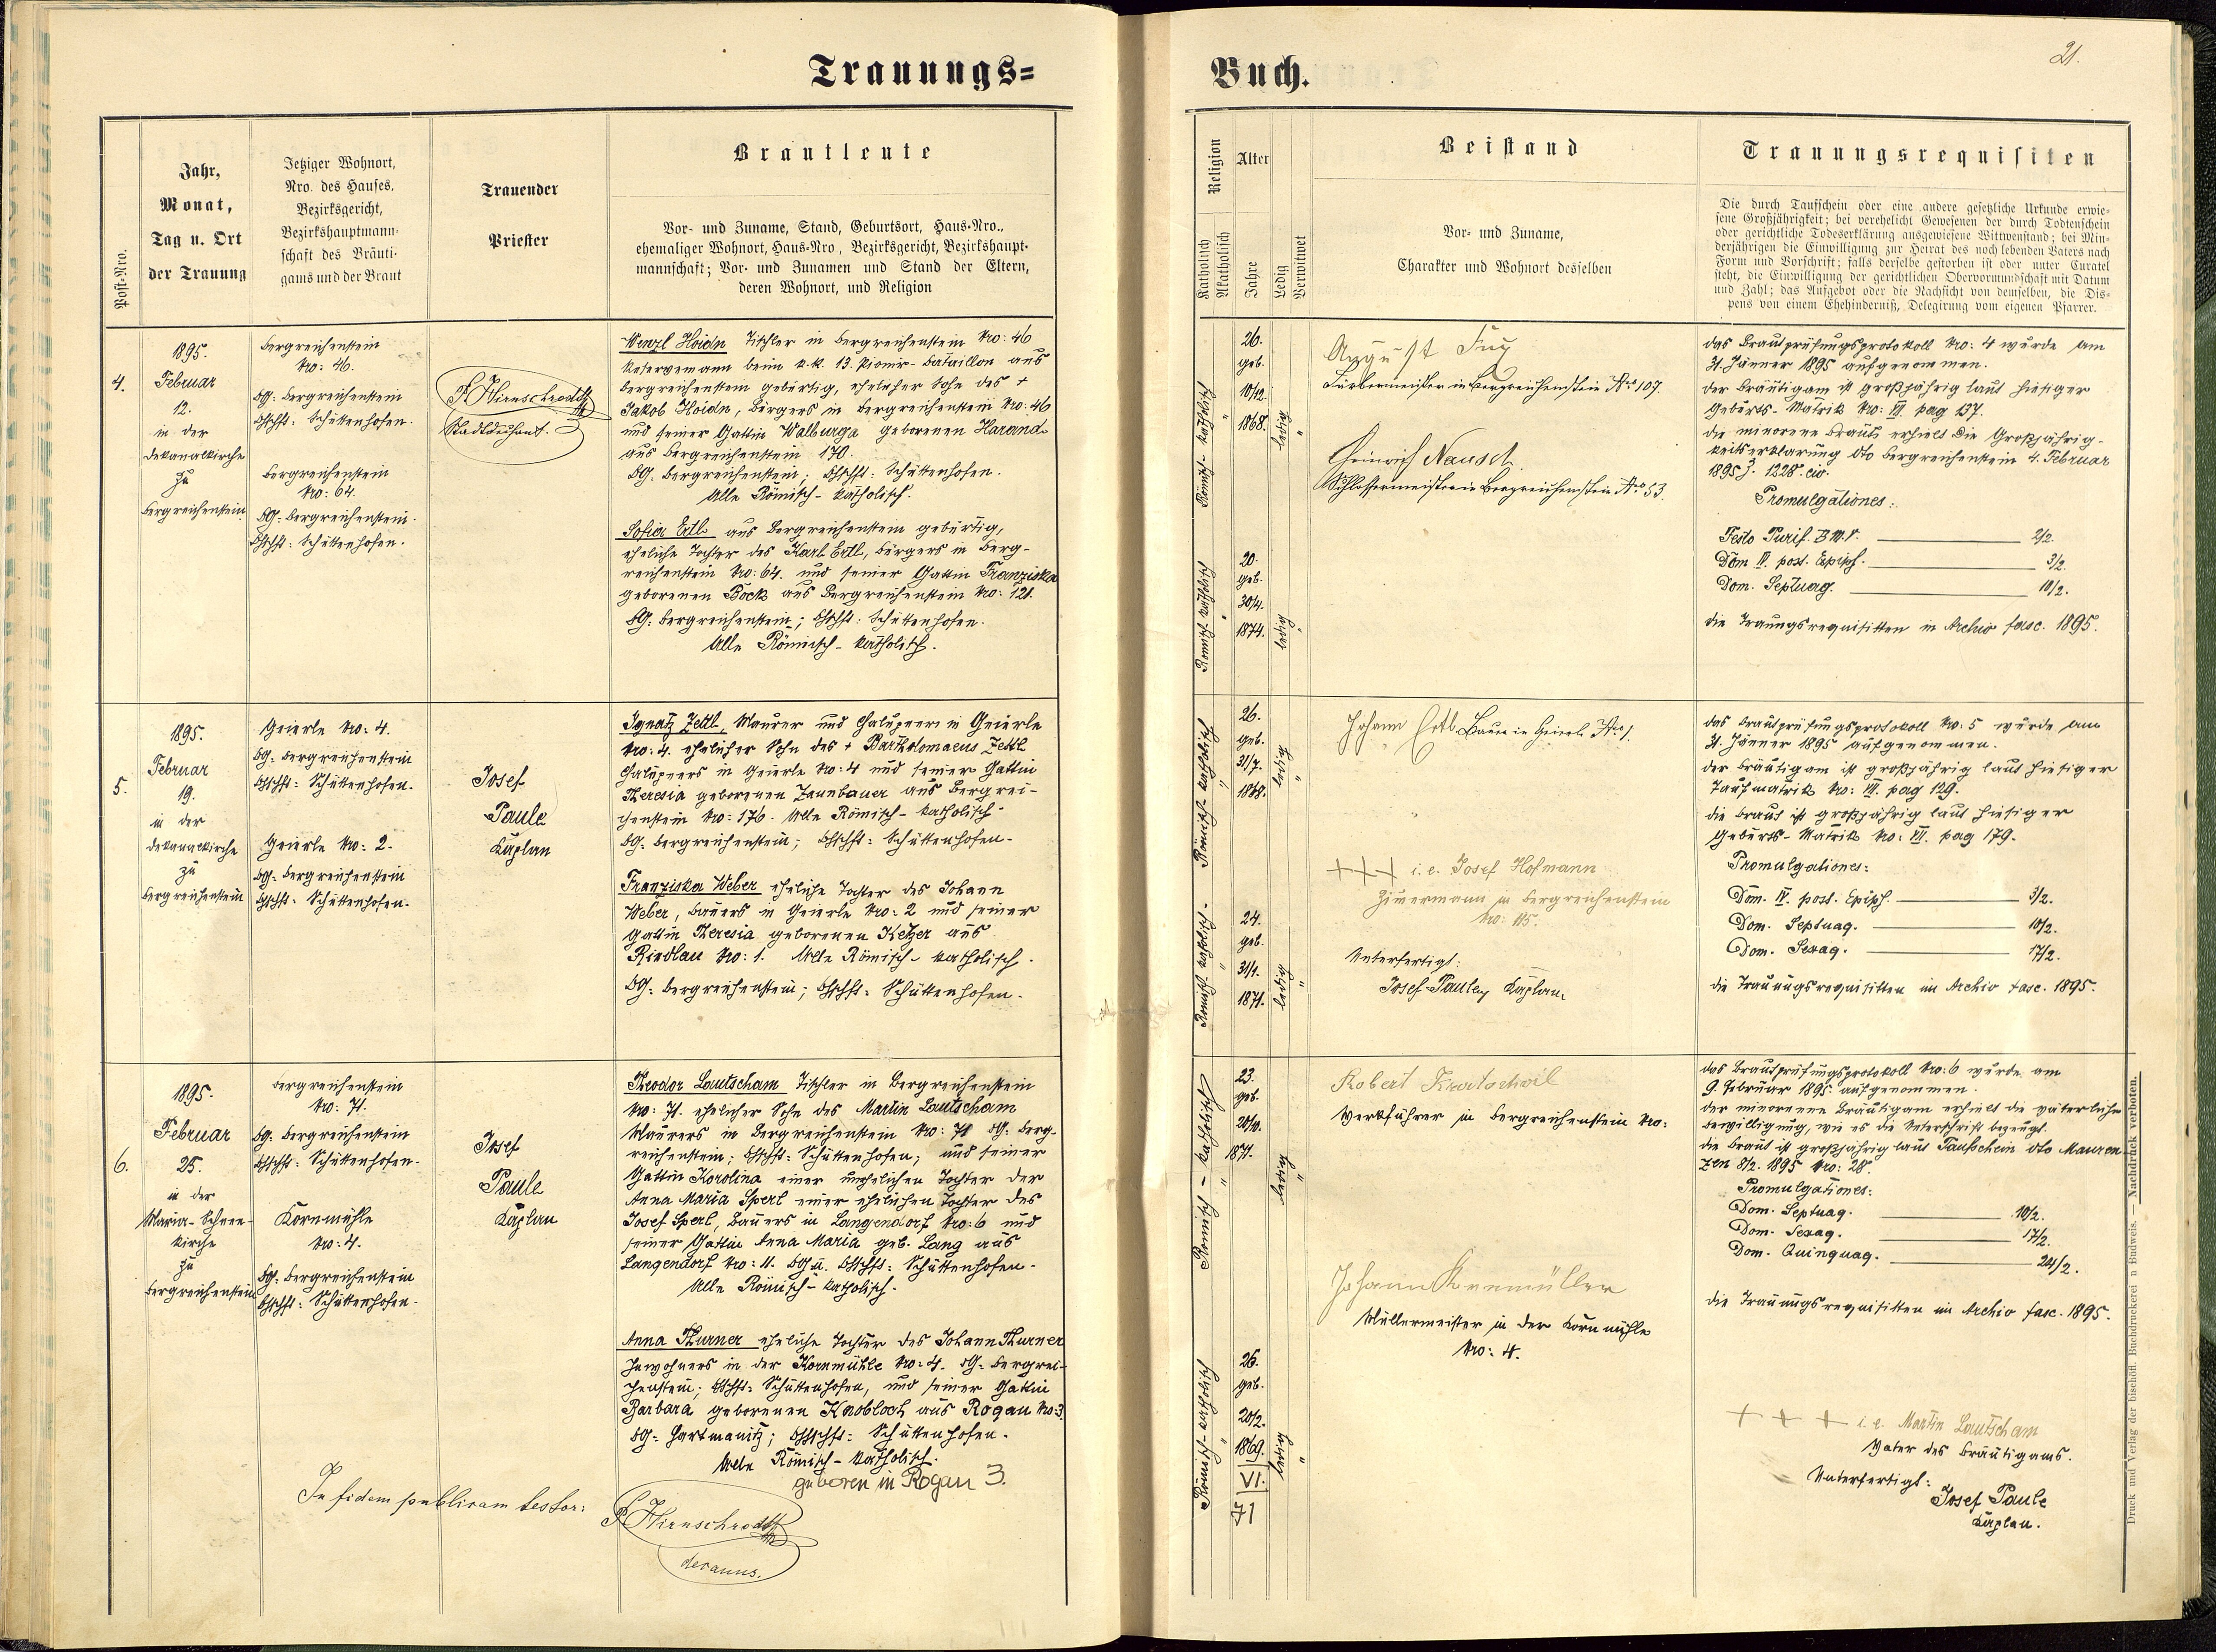 Trauungs=
Buch.
21.
Post-Nro.
Jahr,
Monat,
Tag u. Ort
der Trauung
Jetziger Wohnort,
Nro. des Hauses,
Bezirksgericht,
Bezirkshauptmann-
schaft des Bräuti-
gams und der Braut
Trauender
Priester
Brautleute
Vor- und Zuname, Stand, Geburtsort, Haus-Nro.,
ehemaliger Wohnort, Haus-Nro., Bezirksgericht, Bezirkshaupt-
mannschaft; Vor- und Zunamen und Stand der Eltern,
deren Wohnort, und Religion
Religion
Katholisch
Akatholisch
Alter
Jahre
Ledig
Verwitwet
Beistand
Vor- und Zuname,
Charakter und Wohnort desselben
Trauungsrequisiten
Die durch Taufschein oder eine andere gesetzliche Urkunde erwie-
sene Großjährigkeit; bei verehelicht Gewesenen der durch Todtenschein
oder gerichtliche Todeserklärung ausgewiesene Wittwenstand; bei Min-
derjährigen die Einwilligung zur Heirat des noch lebenden Vaters nach
Form und Vorschrift; falls derselbe gestorben ist oder unter Curatel
steht, die Einwilligung der gerichtlichen Obervormundschaft mit Datum
und Zahl; das Aufgebot oder die Nachsicht von demselben, die Dis-
pens von einem Ehehinderniß, Delegirung vom eigenen Pfarrer.
4.
1895.
Februar
12.
in der
Dekanalkirche
zu
Bergreichenstein
Bergreichenstein
Nro: 46.
BG: Bergreichenstein
BHschft: Schüttenhofen.
Bergreichenstein
Nro: 64.
BG: Bergreichenstein.
BHschft: Schüttenhofen.
P. Hirnschrodt
Stadtdechant.
Wenzl Hoidn Tischler in Bergreichenstein Nro: 46
Reservemann beim k.k. 13. Pionir-Bataillon aus
Bergreichenstein gebürtig, ehelicher Sohn des +
Jakob Hoidn, Bürgers in Bergreichenstein Nro: 46
und seiner Gattin Walburga geborenen Harand
aus Bergreichenstein 170.
BG: Bergreichenstein; BHschft: Schüttenhofen.
Alle Römisch-katholisch.
Sofia Ertl aus Bergreichenstein gebürtig,
eheliche Tochter des Karl Ertl, Bürgers in Berg-
reichenstein Nro: 64. und seiner Gattin Franziska
geborenen Böck aus Bergreichenstein Nro: 121.
BG: Bergreichenstein; BHschft: Schüttenhofen.
Alle Römisch-katholisch.
Römisch-katholisch
26.
geb.
10/12.
1868.
ledig
Römisch-katholisch
20.
geb.
30/4.
1874.
ledig
August Fux
Färbermeister in Bergreichenstein Nro 107.
Heinrich Nausch
Schlossermeister in Bergreichenstein Nro 53.
Das Brautprüfungsprotokoll Nro: 4 wurde am
31. Jänner 1895 aufgenommen.
Der Bräutigam ist großjährig laut hiesiger
Geburts-Matrik Nro: VI. pag 137.
Die minorene Braut erhielt die Großjährig-
keitserklärung dto Bergreichenstein 4. Februar
1895 Z. 1228. civ.
Promulgationes:
Festo Purif. B.M.V. 2/2.
Dom IV. post. Epiph. 3/2.
Dom. Septuag. 10/2.
Die Trauungsrequisitten in Archiv fasc. 1895.
5.
1895.
Februar
19.
in der
Dekanalkirche
zu
Bergreichenstein
Geierle Nro: 4.
BG: Bergreichenstein
BHschft: Schüttenhofen.
Geierle Nro: 2.
BG: Bergreichenstein
BHschft: Schüttenhofen.
Josef
Paule
Kaplan
Ignatz Zettl, Maurer und Chalupner in Geierle
Nro: 4. ehelicher Sohn des + Bartholomaeus Zettl
Chalupners in Geierle Nro: 4 und seiner Gattin
Theresia geborenen Zaunbauer aus Bergrei-
chenstein Nro: 176. Alle Römisch-katholisch.
BG: Bergreichenstein; BHschft: Schüttenhofen.
Franziska Weber eheliche Tochter des Johann
Weber, Bauers in Geierle Nro: 2 und seiner
Gattin Theresia geborenen Ketzer aus
Rindlau Nro: 1. Alle Römisch-katholisch.
BG: Bergreichenstein; BHschft: Schüttenhofen.
Römisch-katholisch
26.
geb.
31/7.
1868.
ledig
Römisch-katholisch
24.
geb.
31/1.
1871.
ledig
Johann Ertl Bauer in Geierle Nro 1.
+++ i.e. Josef Hofmann
Zimermann in Bergreichenstein
Nro: 115.
Unterfertigt:
Josef Paule, Kaplan.
Das Brautprüfungsprotokoll Nro: 5 wurde am
31. Jänner 1895 aufgenommen.
Der Bräutigam ist großjährig laut hiesiger
Taufmatrik Nro: VI. pag 129.
Die Braut ist großjährig laut hiesiger
Geburts-Matrik No: VI. pag 179.
Promulgationes:
Dom. IV. post. Epiph. 3/2.
Dom. Septuag. 10/2.
Dom. Sexag. 17/2.
Die Trauungsrequisitten im Archiv fasc. 1895.
6.
1895.
Februar
25.
in der
Maria-Schnee-
kirche
zu
Bergreichenstein
Bergreichenstein
Nro: 71.
BG: Bergreichenstein
BHschft: Schüttenhofen.
Kornmühle
Nro: 4.
BG: Bergreichenstein
BHschft: Schüttenhofen.
Josef
Paule
Kaplan
Theodor Lautscham Tischler in Bergreichenstein
Nro: 71. ehelicher Sohn des Martin Lautscham
Maurers in Bergreichenstein Nro: 71 BG: Berg-
reichenstein; BHschft: Schüttenhofen; und seiner
Gattin Karolina einer unehelichen Tochter der
Anna Maria Sperl einer ehelichen Tochter des
Josef Sperl, Bauers in Langendorf Nro: 6 und
seiner Gattin Anna Maria geb. Lang aus
Langendorf Nro: 11. BG u. BHschft: Schüttenhofen.
Alle Römisch-katholisch.
Anna Thurner eheliche Tochter des Johann Thurner
Inwohners in der Kornmühle Nro: 4. BG: Bergrei-
chenstein; BHschft: Schüttenhofen, und seiner Gattin
Barbara geborenen Knobloch aus Rogau Nro: 3.
BG: Hartmanitz; BHschft: Schüttenhofen.
Alle Römisch-katholisch.
geboren in Rogau 3.
In fidem publicam testor:
P. Hirnschrodt
decanus.
Römisch-katholisch
23.
geb.
1871.
ledig
Römisch-katholisch
26.
geb.
20/2.
1869.
VI.
71
ledig
Robert Kratochwil
Werkführer in Bergreichenstein Nro:
Johann Kornmüller
Müllermeister in der Kornmühle
Nro: 4.
Das Brautprüfungsprotokoll Nro: 6 wurde am
9. Februar 1895 aufgenommen.
Der minorenne Bräutigam erhielt die väterliche
Bewilligung, wie es die Unterschrift bezeugt.
Die Braut ist großjährig laut Taufschein dto Mauren-
zen 8/2. 1895 Nro: 28.
Promulgationes:
Dom. Septuag. 10/2.
Dom. Sexag. 17/2.
Dom. Quinquag. 24/2.
Die Trauungsrequisitten im Archiv fasc. 1895.
+ + + i.e. Martin Lautscham
Vater des Bräutigams.
Unterfertigt:
Josef Paule
Kaplan.
Druck und Verlag der bischöfl. Buchdruckerei in Budweis. — Nachdruck verboten.